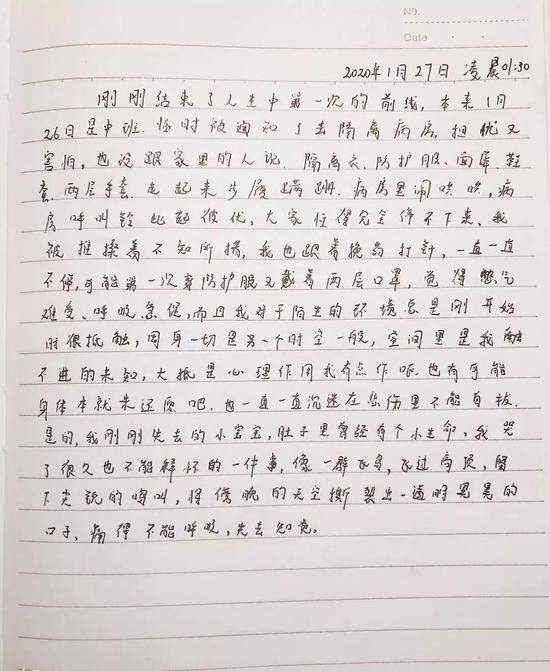 NO.
Date
2020年1月27日 凌晨01:30
刚刚结束了人生中第一次的前线,本来1月
26日是中班.临时被通知了去隔离病房,担忧又
害怕,也没跟家里的人说.隔离衣、防护服、面屏、鞋
套、两层手套.走起来步履蹒跚.病房里闹哄哄,病
房呼叫铃此起彼伏、大家忙得完全停不下来、我
被推搡着不知所措,我也跟着换药打针,一直一直
不停,可能第一次穿防护服又戴着两层口罩,觉得憋气
难受、呼吸急促,而且我对于陌生的环境总是刚开始
时很抵触,周身一切是另一个时空一般,空间里是我融
不进的未知,大抵是心理作用我有点作呕.也有可能
身体本就未还愿吧.也一直一直沉迷在悲伤里不能自拔.
是的,我刚刚失去的小宝宝,肚子里曾经有个小生命,我哭
了很久也不能释怀的一件事,像一群飞鸟,飞过高顶,留
下尖锐的鸣叫,将傍晚的天空撕裂出一透明晃晃的
口子,痛得不能呼吸,失去知觉。